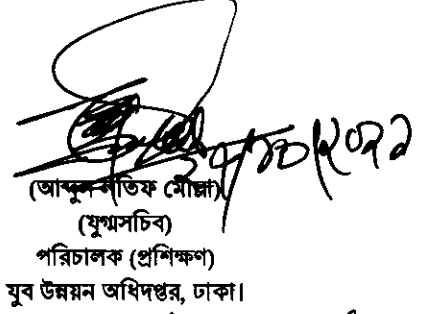 (আব্দুল লতিফ মোল্লা)
(যুগ্মসচিব)
পরিচালক (প্রশিক্ষণ)
যুব উন্নয়ন অধিদপ্তর, ঢাকা।